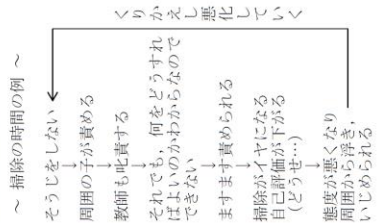 ～ 掃除の時間の例 ～
そうじをしない
周囲の子が責める
教師も叱責する
それでも，何をどうすれ
ばよいのかわからなので
できない
ますます責められる
掃除がイヤになる
自己評価が下がる
(どうせ…)
態度が悪くなり
周囲から浮き，
いじめられる
くりかえし悪化していく